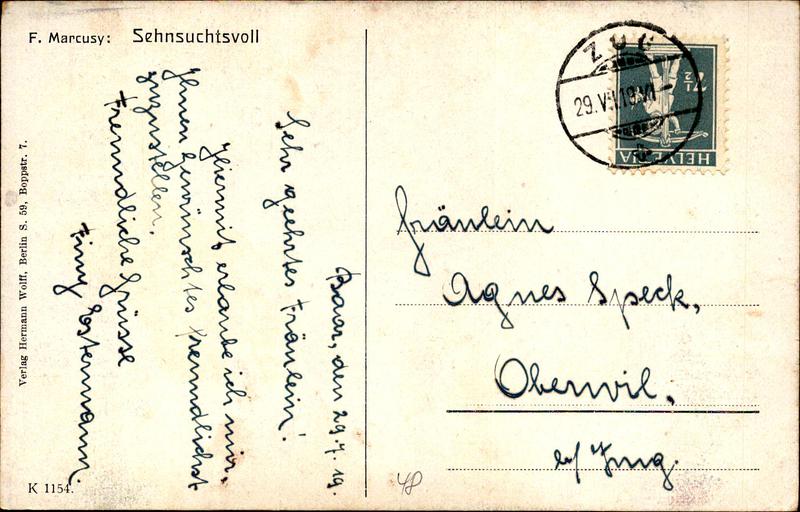 F. Marcusy: Sehnsuchtsvoll
Baar, den 29.7.19.
Sehr geehrtes Fräulein!
Hiermit erlaube ich mir,
Ihnen Gewünschtes freundlichst
zuzustellen.
Freundliche Grüsse
Finy Ostermann.
Verlag Hermann Wolff, Berlin S. 59, Boppstr. 7.
K 1154.
ZUG
29.VII.19.VI-
7½
HELVETIA
Fräulein
Agnes Speck,
Oberwil,
b/Zug.
48